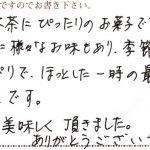 ですのでお書き下さい。
茶にぴったりのお菓子で
に様々なお味もあり、季節
ぴりで、ほっとした一時の最
です。
美味しく頂きました。
ありがとうござい